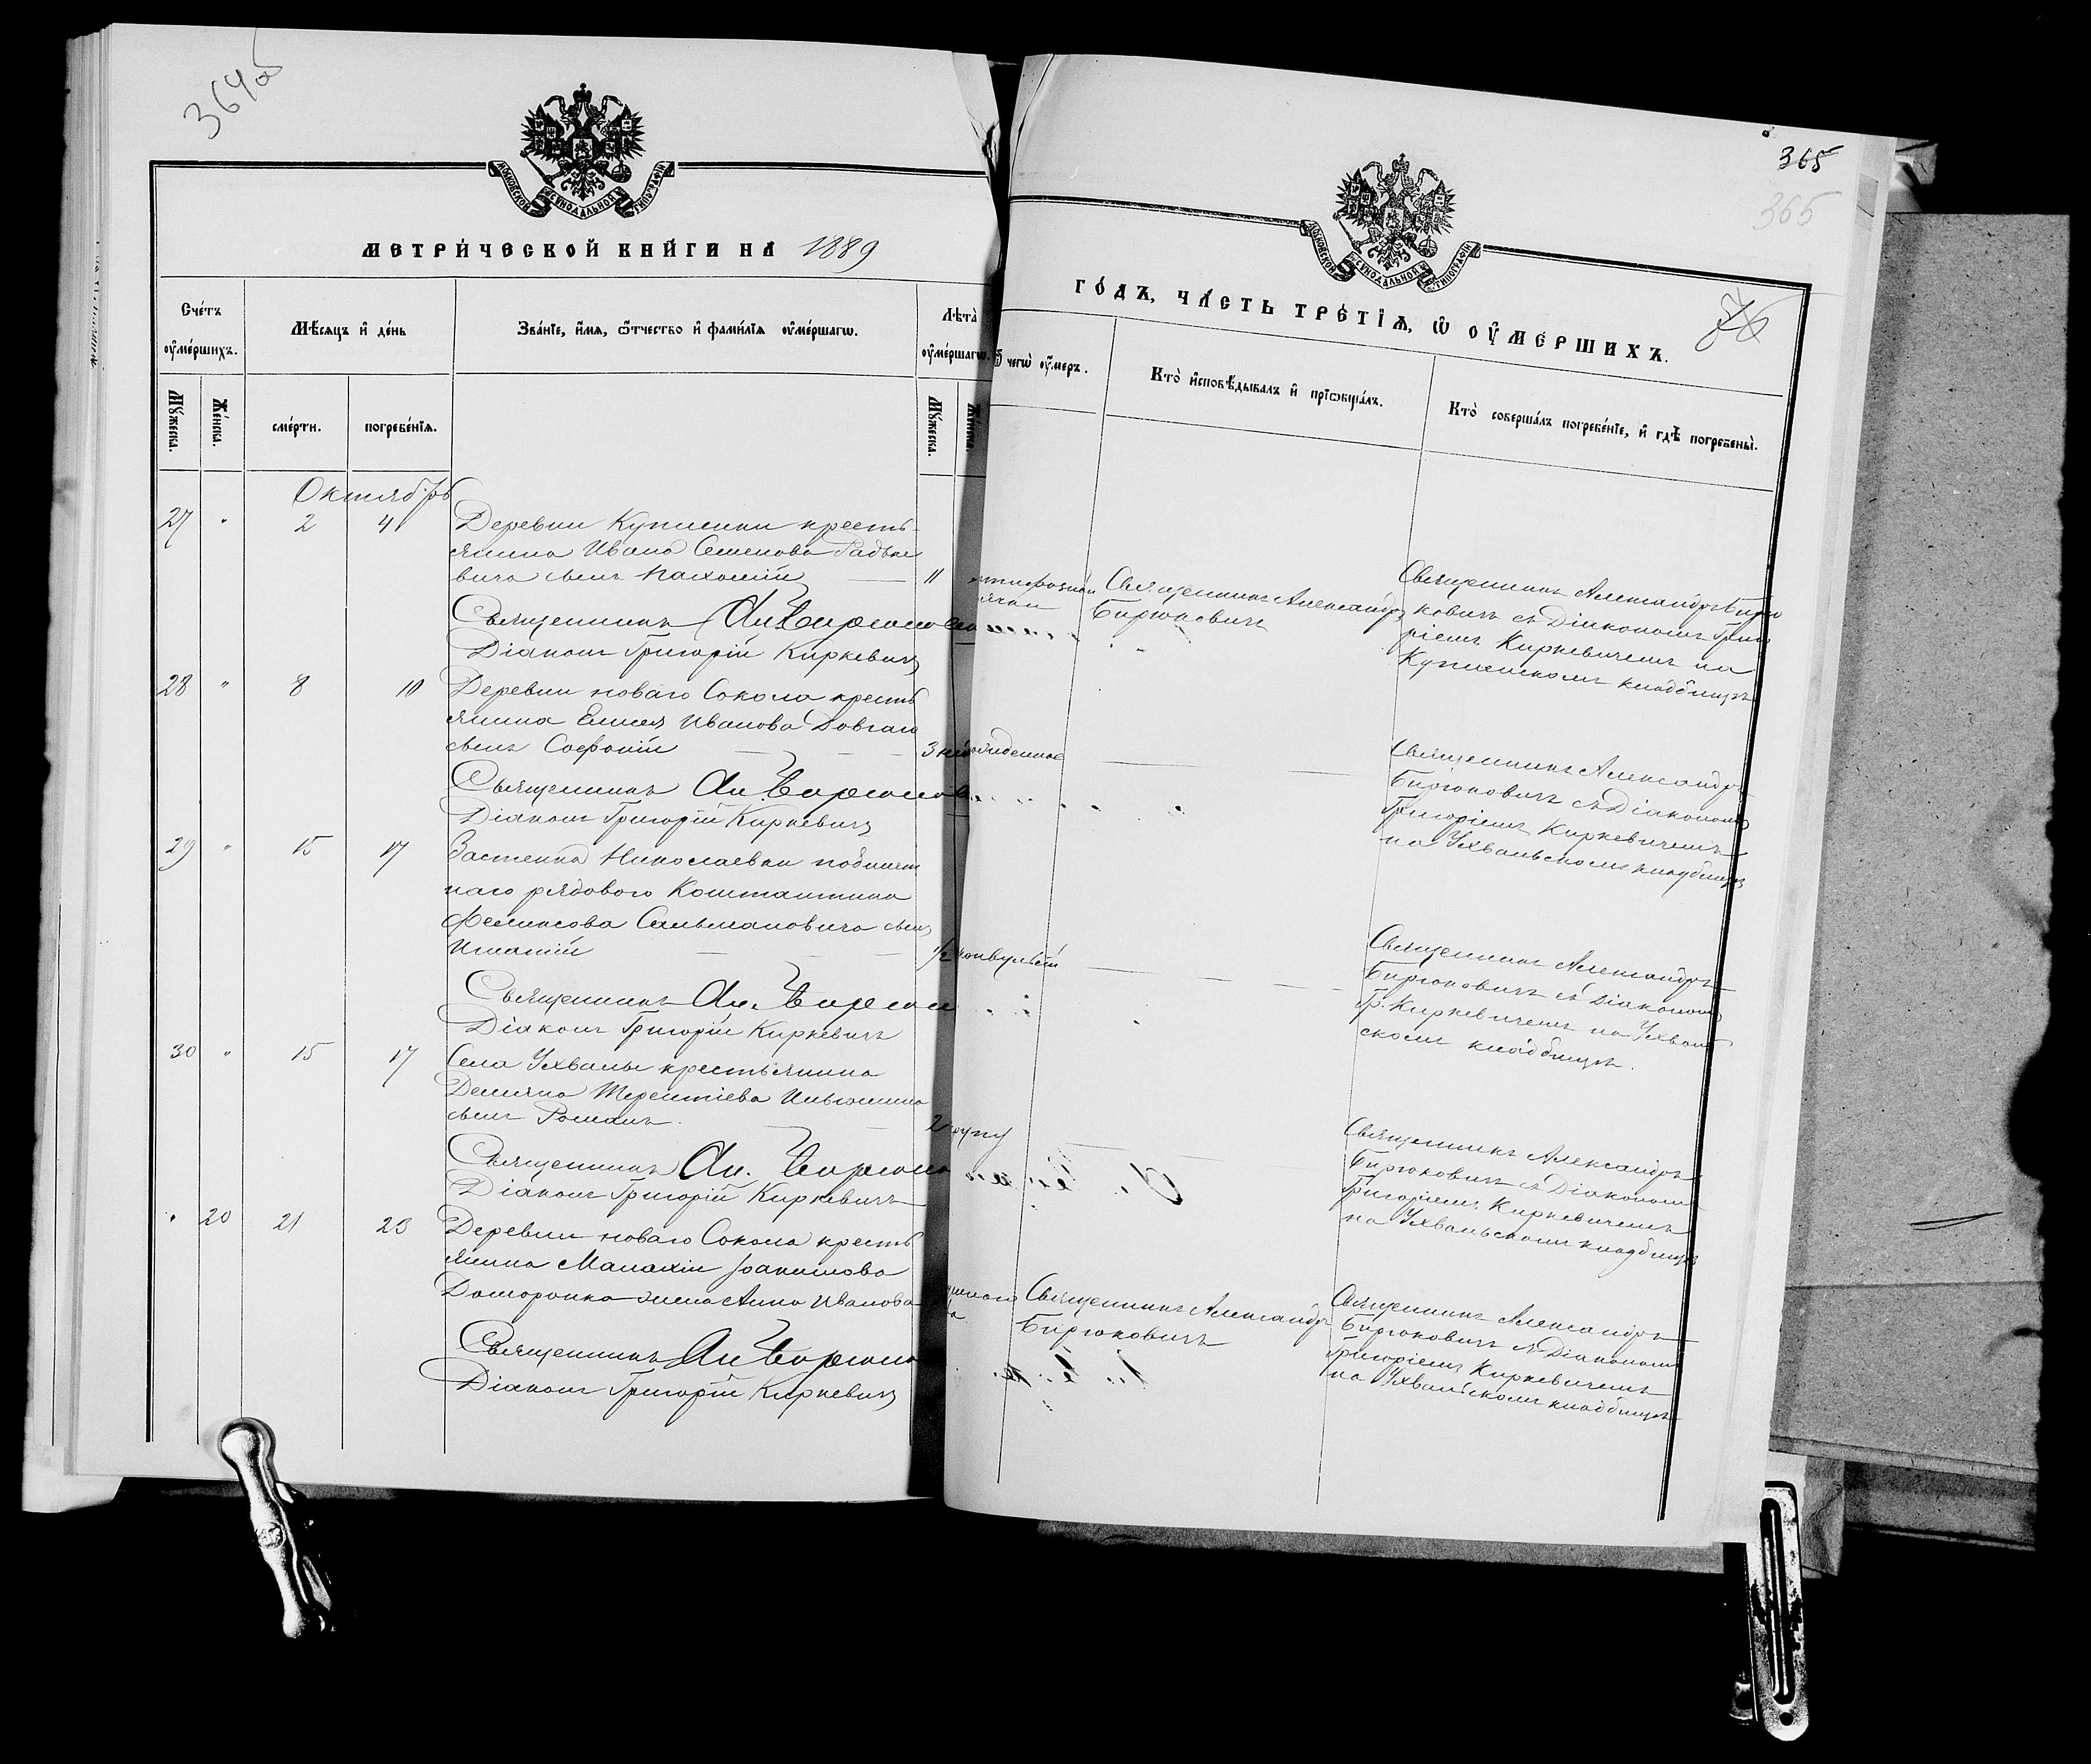 364об
МОСКОВСКОЙ СѴНОДАЛЬНОЙ ТИПОГРАФІИ
МЕТРИ́ЧЕСКОЙ КНИ́ГИ НА 1889
Сче́тъ оу҆ме́ршихъ.
Мѣ́сяцъ и҆ де́нь
Зва́нїе, и҆́мѧ, ѻ҆́тчество и҆ фами́лїѧ оу҆ме́ршагѡ.
Лѣ́та оу҆ме́ршагѡ.
Мꙋ́жеска.
Же́нска.
сме́рти.
погребе́нїѧ.
Мꙋ́жеска.
Же́нска.
Октябрь
27 " 2 4 Деревни Купленки кресть-
янина Ивана Семенова Радке
вича сынъ Пахомій 11
Священникъ Ал. Бирюкович
Діаконъ Григорій Киркевичъ
28 " 8 10 Деревни новаго Сокола кресть
янина Елисея Иванова Довгало
сынъ Софоній 3 не
Священникъ Ал. Бирюков
Діаконъ Григорій Киркевичъ
29 " 15 17 Застенка Николаевки
наго рядового Константина
Феликсова Сальмановича сынъ
Игнатій 1/2
Священникъ Ал. Бирюков
Діаконъ Григорій Киркевичъ
30 " 15 17 Села Ухвалы крестьянина
Демяна Терентіева Ильюшина
сынъ Романъ. 2
Священникъ Ал. Бирюков
Діаконъ Григорій Киркевичъ
" 20 21 23 Деревни новаго Сокола кресть
янина Малахіи Іоакимова
Доморонка жена Анна Иванова
Священникъ Ал. Бирюков
Діаконъ Григорій Киркевичъ
365
365
МОСКОВСКОЙ СѴНОДАЛЬНОЙ ТИПОГРАФІИ
ГО́ДЪ, ЧА́СТЬ ТРЕ́ТЇѦ, Ѡ҆ ОУ҆МЕ́РШИХЪ.
76
Ѿ чегѡ̀ оу҆́меръ.
Кто̀ и҆сповѣ́дывалъ и҆ прїѡбща́лъ.
Кто̀ соверша́лъ погребе́нїе, и҆ гдѣ̀ погребены̀.
тифозной
ячки
Священникъ Александръ
Бирюковичъ
Священникъ Александръ Бирю
ковичъ съ Діакономъ Григо
ріемъ Киркевичемъ на
Купленскомъ кладбищѣ
Священникъ Александръ
Бирюковичъ съ Діакономъ
Григоріемъ Киркевичемъ
на Ухвальскомъ кладбищѣ
конвульсіи
Священникъ Александръ
Бирюковичъ съ Діакономъ
Гр. Киркевичемъ на Ухваль
скомъ кладбищѣ.
крупу
Священникъ Александръ
Бирюковичъ съ Діакономъ
Григоріемъ Киркевичемъ
на Ухвальскомъ кладбищѣ
Священникъ Александръ
Бирюковичъ
Священникъ Александръ
Бирюковичъ съ Діакономъ
Григоріемъ Киркевичемъ
на Ухвальскомъ кладбищѣ